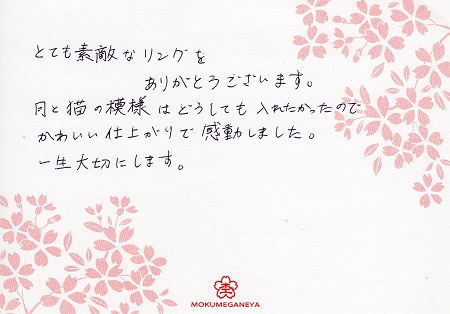 とても素敵なリングを
ありがとうございます。
月と猫の模様はどうしても入れたかったので
かわいい仕上がりで感動しました。
一生大切にします。
MOKUMEGANEYA